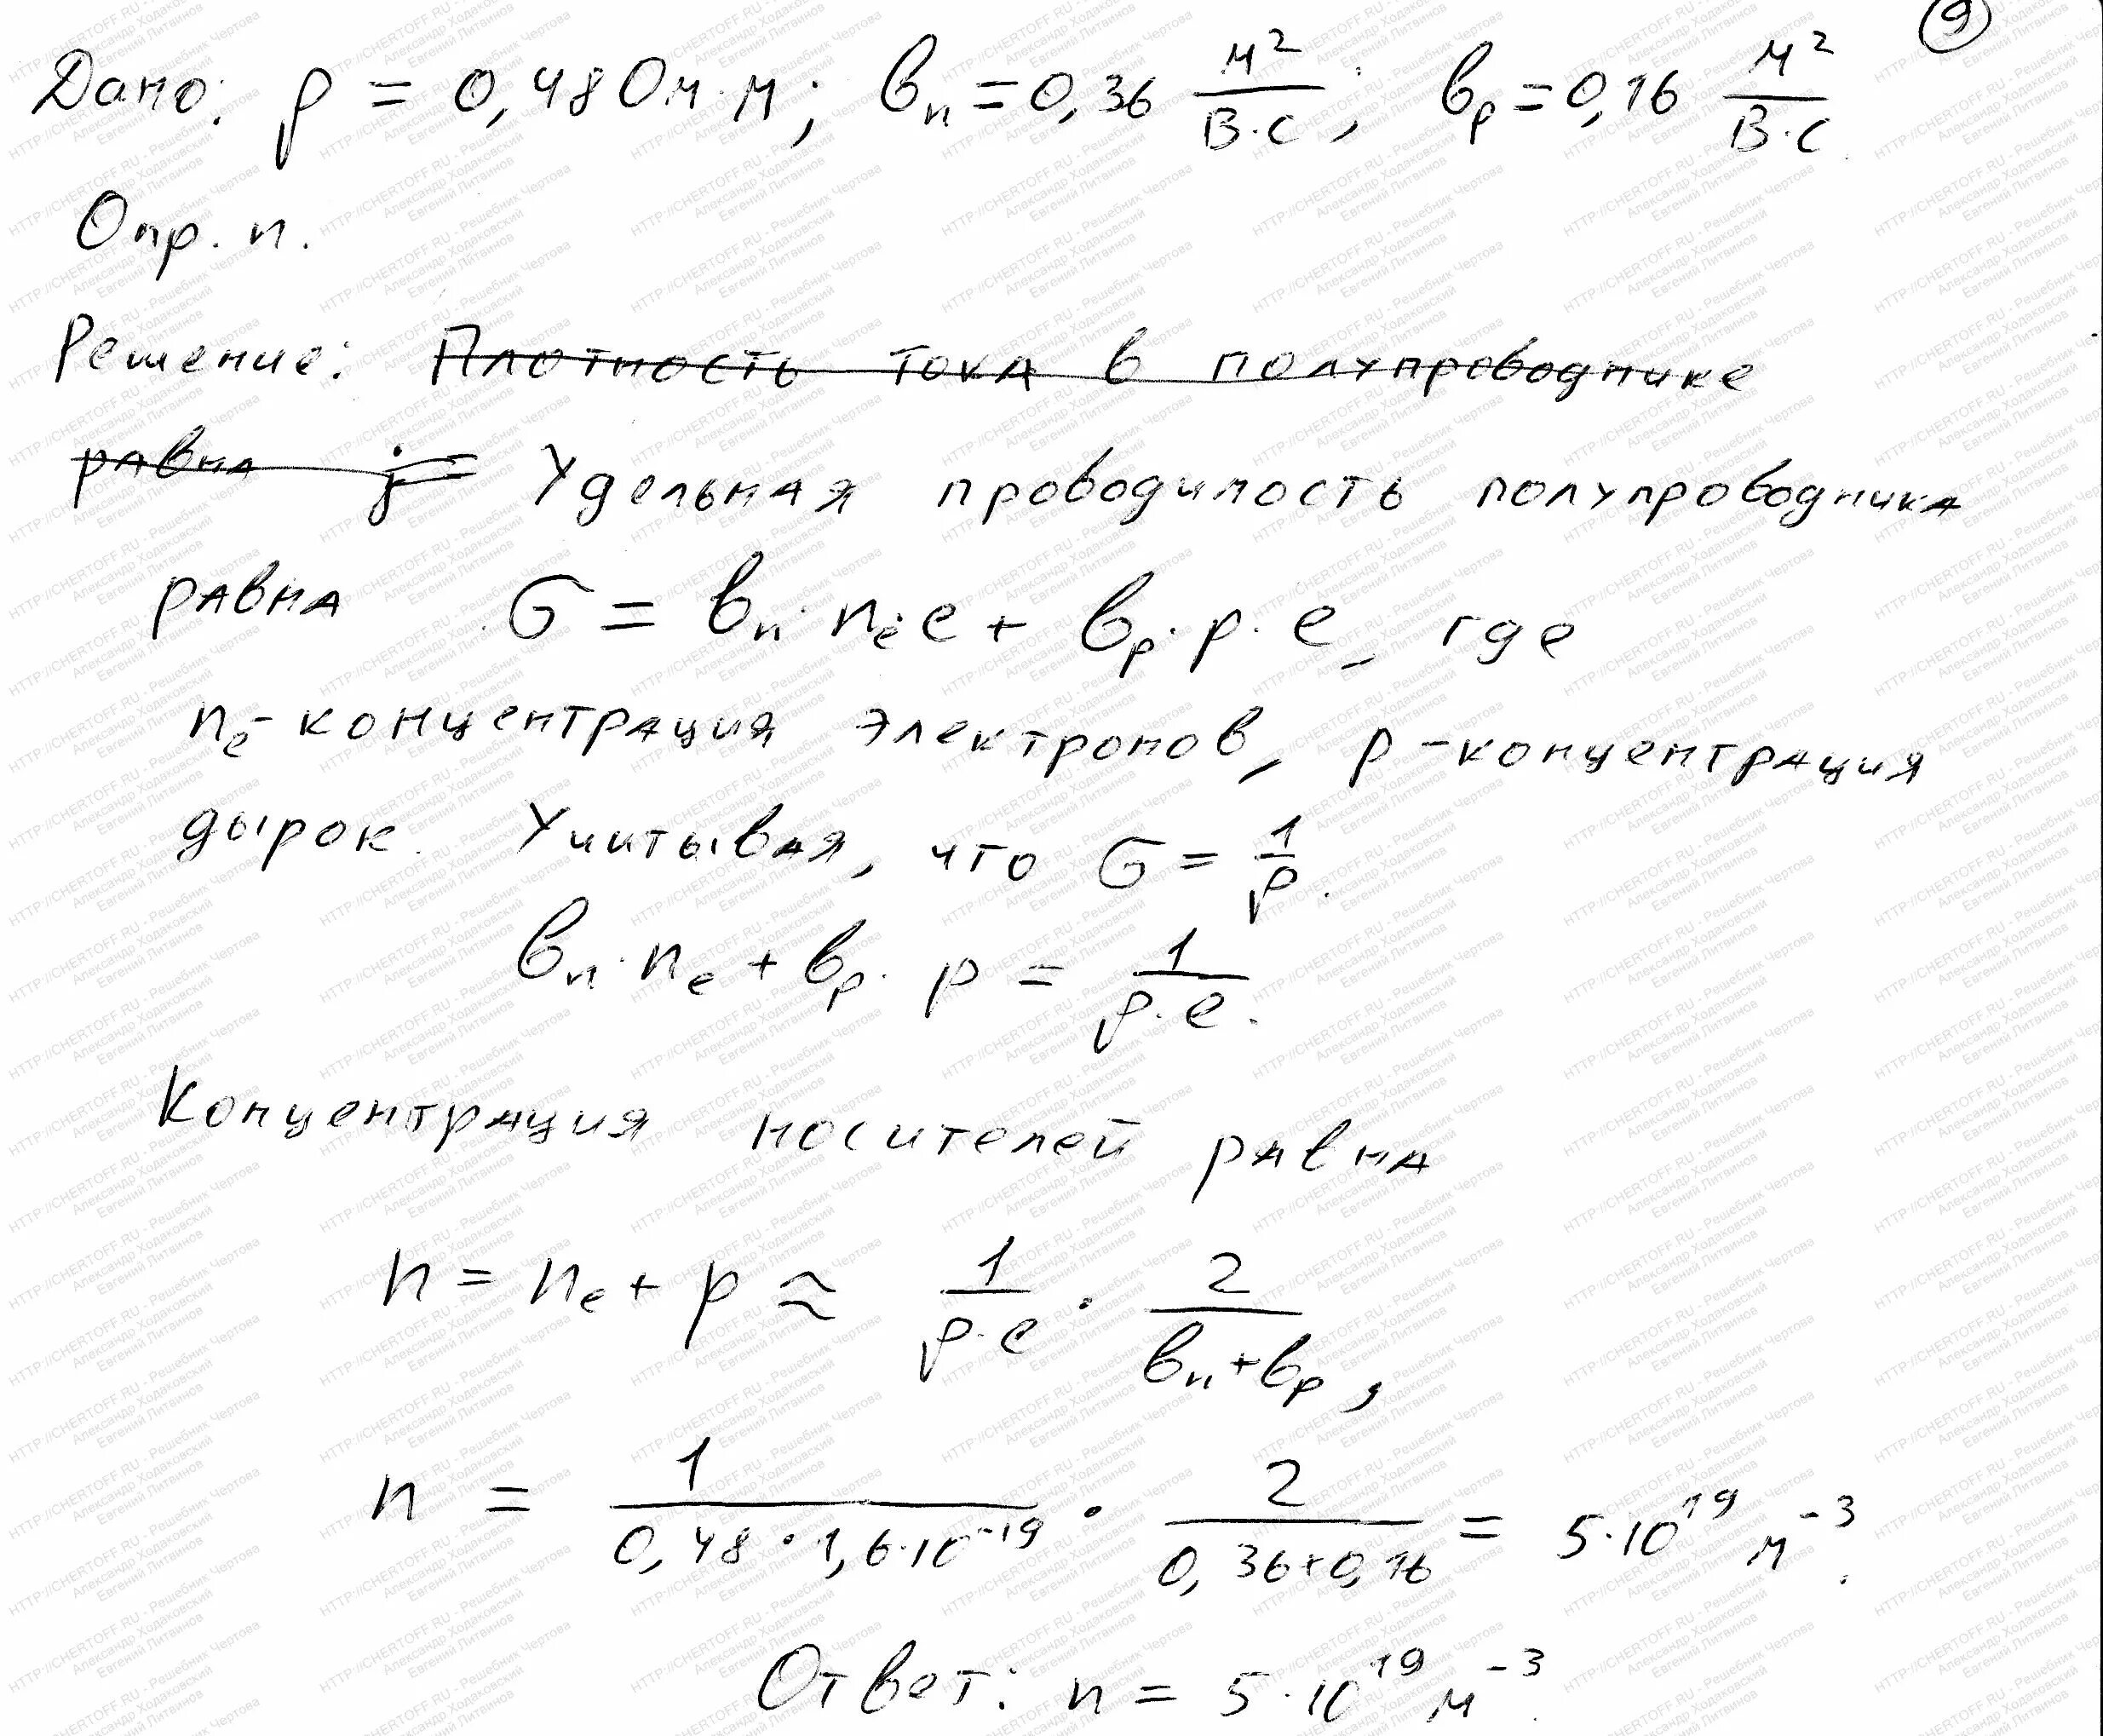 9
Дано: ρ = 0,48 Ом·м; bₙ = 0,36 м²/В·с; bₚ = 0,16 м²/В·с
Опр. n.
Решение: Плотность тока в полупроводнике
равна j = Удельная проводимость полупроводника
равна σ = bₙ·nₑ·e + bₚ·p·e, где
nₑ - концентрация электронов, p - концентрация
дырок. Учитывая, что σ = 1/ρ.
bₙ·nₑ + bₚ·p = 1/ρ·e.
Концентрация носителей равна
n = nₑ + p ≈ 1/ρ·e · 2/bₙ+bₚ,
n = 1/0,48·1,6·10⁻¹⁹ · 2/0,36+0,16 = 5·10¹⁹ м⁻³.
Ответ: n = 5·10¹⁹ м⁻³.
HTTP://CHERTOFF.RU - Решебник Чертова
Александр Ходаковский
Евгений Литвинов